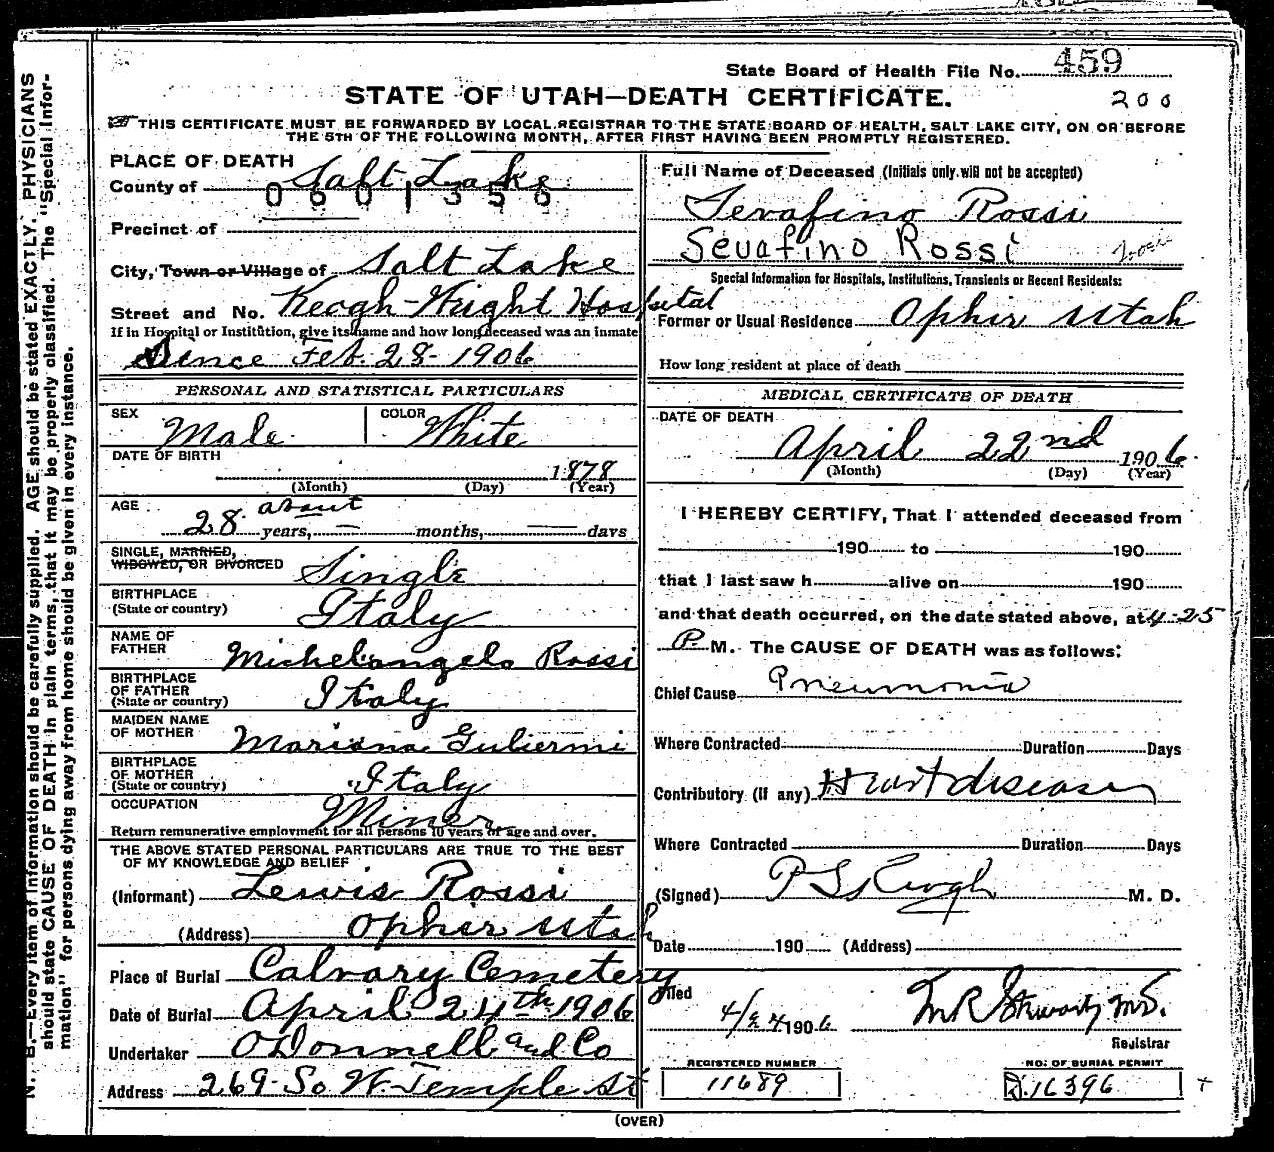 State Board of Health File No. 459
STATE OF UTAH—DEATH CERTIFICATE.
200
THIS CERTIFICATE MUST BE FORWARDED BY LOCAL REGISTRAR TO THE STATE BOARD OF HEALTH, SALT LAKE CITY, ON OR BEFORE
THE 5TH OF THE FOLLOWING MONTH, AFTER FIRST HAVING BEEN PROMPTLY REGISTERED.
N. B.—Every item of Information should be carefully supplied. AGE should be stated EXACTLY. PHYSICIANS
should state CAUSE OF DEATH in plain terms, that it may be properly classified. The "Special Infor-
mation" for persons dying away from home should be given in every instance.
PLACE OF DEATH
County of Salt Lake
0601356
Precinct of
City, Town or Village of Salt Lake
Street and No. Keogh-Wright Hospital
If in Hospital or Institution, give its name and how long deceased was an inmate
Since Feb. 28-1906
PERSONAL AND STATISTICAL PARTICULARS
SEX Male COLOR White
DATE OF BIRTH 1878
(Month) (Day) (Year)
AGE about
28 years, — months, — days
SINGLE, MARRIED,
WIDOWED, OR DIVORCED Single
BIRTHPLACE
(State or country) Italy
NAME OF
FATHER Michelangelo Rossi
BIRTHPLACE
OF FATHER
(State or country) Italy
MAIDEN NAME
OF MOTHER Mariana Guliermi
BIRTHPLACE
OF MOTHER
(State or country) Italy
OCCUPATION Miner
Return remunerative employment for all persons 10 years of age and over.
THE ABOVE STATED PERSONAL PARTICULARS ARE TRUE TO THE BEST
OF MY KNOWLEDGE AND BELIEF
(Informant) Lewis Rossi
(Address) Ophir Utah
Place of Burial Calvary Cemetery
Date of Burial April 24th 1906
Undertaker O'Donnell and Co
Address 269 So W. Temple St
Full Name of Deceased (Initials only will not be accepted)
Serafino Rossi
Serafino Rossi
Special Information for Hospitals, Institutions, Transients or Recent Residents:
Former or Usual Residence Ophir Utah
How long resident at place of death
MEDICAL CERTIFICATE OF DEATH
DATE OF DEATH
April 22nd 1906.
(Month) (Day) (Year)
I HEREBY CERTIFY, That I attended deceased from
190 to 190
that I last saw h alive on 190
and that death occurred, on the date stated above, at 4-25
P. M. The CAUSE OF DEATH was as follows:
Chief Cause Pneumonia
Where Contracted Duration Days
Contributory (if any) Heart disease
Where Contracted Duration Days
(Signed) P S Keogh M. D.
Date 190 (Address)
Filed
4/24 1906
Registrar
REGISTERED NUMBER NO. OF BURIAL PERMIT
11689 D.16396
(OVER)